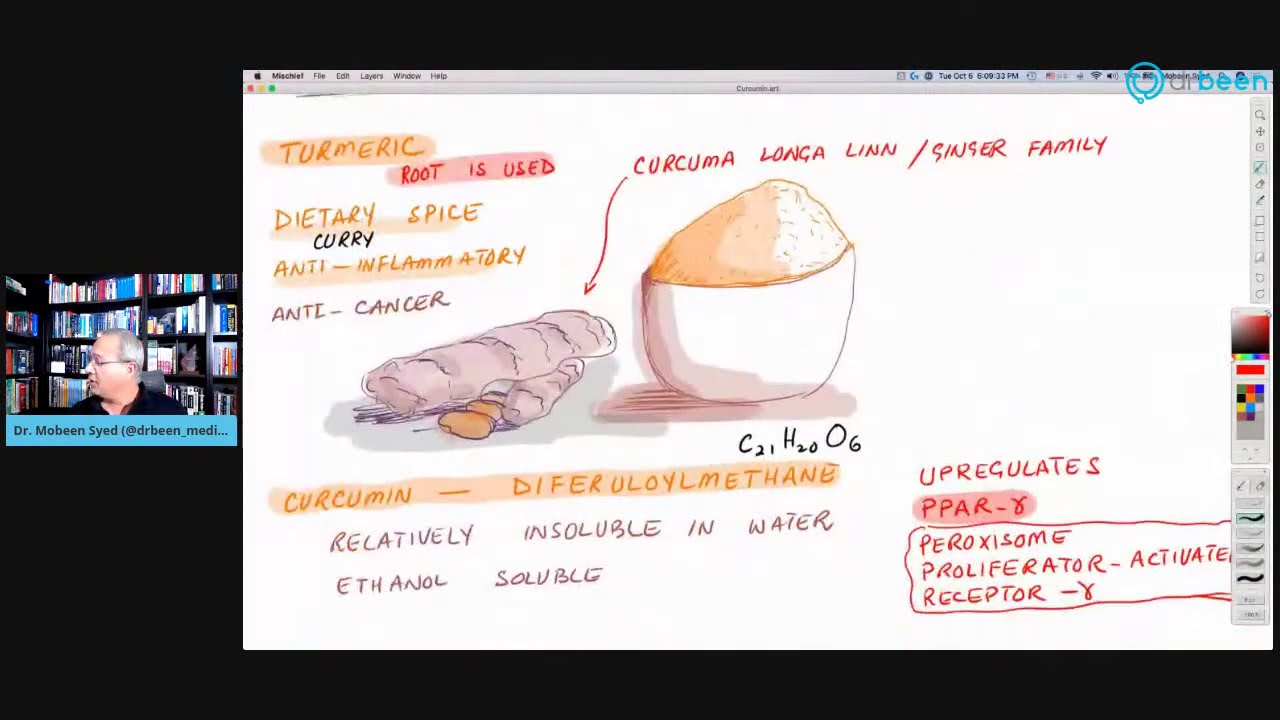 Mischief File Edit Layers Window Help
Tue Oct 6 6:09:33 PM
Mobeen Syed
drbeen
Curcumin.art
TURMERIC
ROOT IS USED
CURCUMA LONGA LINN / GINGER FAMILY
DIETARY SPICE
CURRY
ANTI-INFLAMMATORY
ANTI-CANCER
Dr. Mobeen Syed (@drbeen_medi...
C21 H20 O6
CURCUMIN — DIFERULOYLMETHANE
RELATIVELY INSOLUBLE IN WATER
ETHANOL SOLUBLE
UPREGULATES
PPAR-γ
PEROXISOME
PROLIFERATOR-ACTIVATE
RECEPTOR-γ